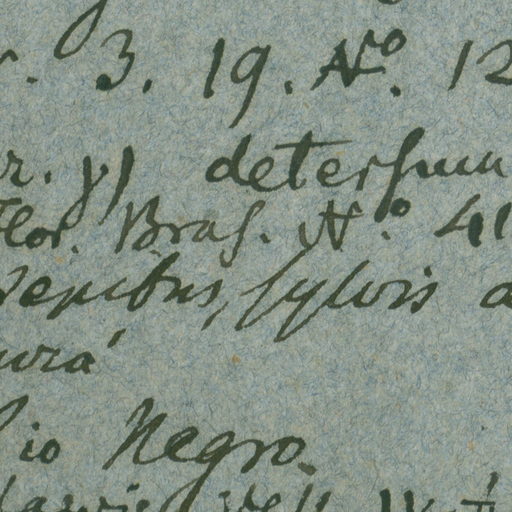 . 3. 19. No. 12
r. γ) determin
Flor. Bras. No. 41
Sepibus, sylvis a
urá
io Negro.